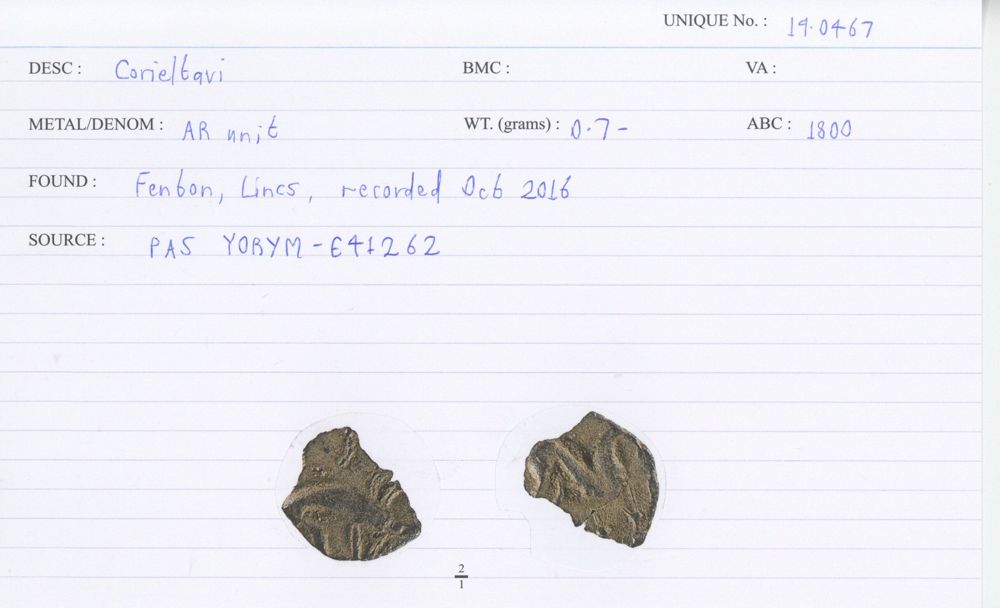 UNIQUE No. : 19.0467
DESC : Corieltavi BMC : VA :
METAL/DENOM : AR unit WT. (grams) : 0.7- ABC : 1800
FOUND : Fenton, Lincs, recorded Oct 2016
SOURCE : PAS YORYM-E41262
2
1